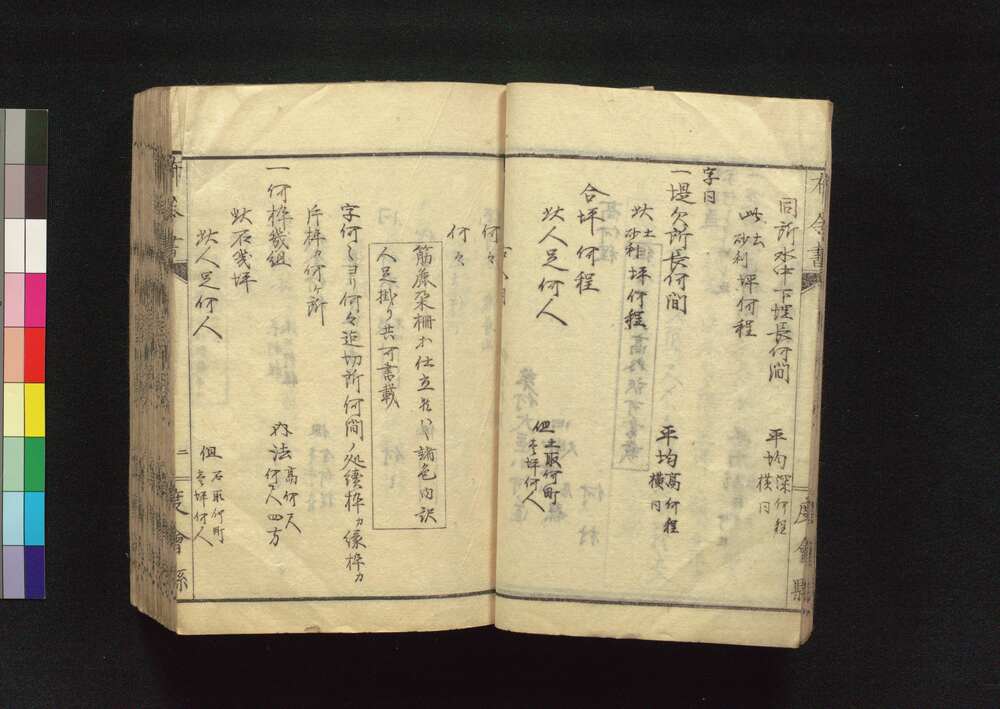 布令書
同所水中下埋長何間
平均深何程
横同
此土
砂利坪何程
字同
一堤欠所長何間
平均高何程
横同
此土
砂利坪何程
合坪何程
此人足何人
但土取何町
壱坪何人
何々
何々
筋麁朶柵等仕立候ハヽ諸色内訳
人足掛リ共可書載
字何々ヨリ何々迄切所何間ノ処続枠カ
片枠カ何ヶ所
一何枠幾組
内法高何尺
何尺四方
此石幾坪
此人足何人
但石取何町
壱坪何人
布令書
二
度會縣